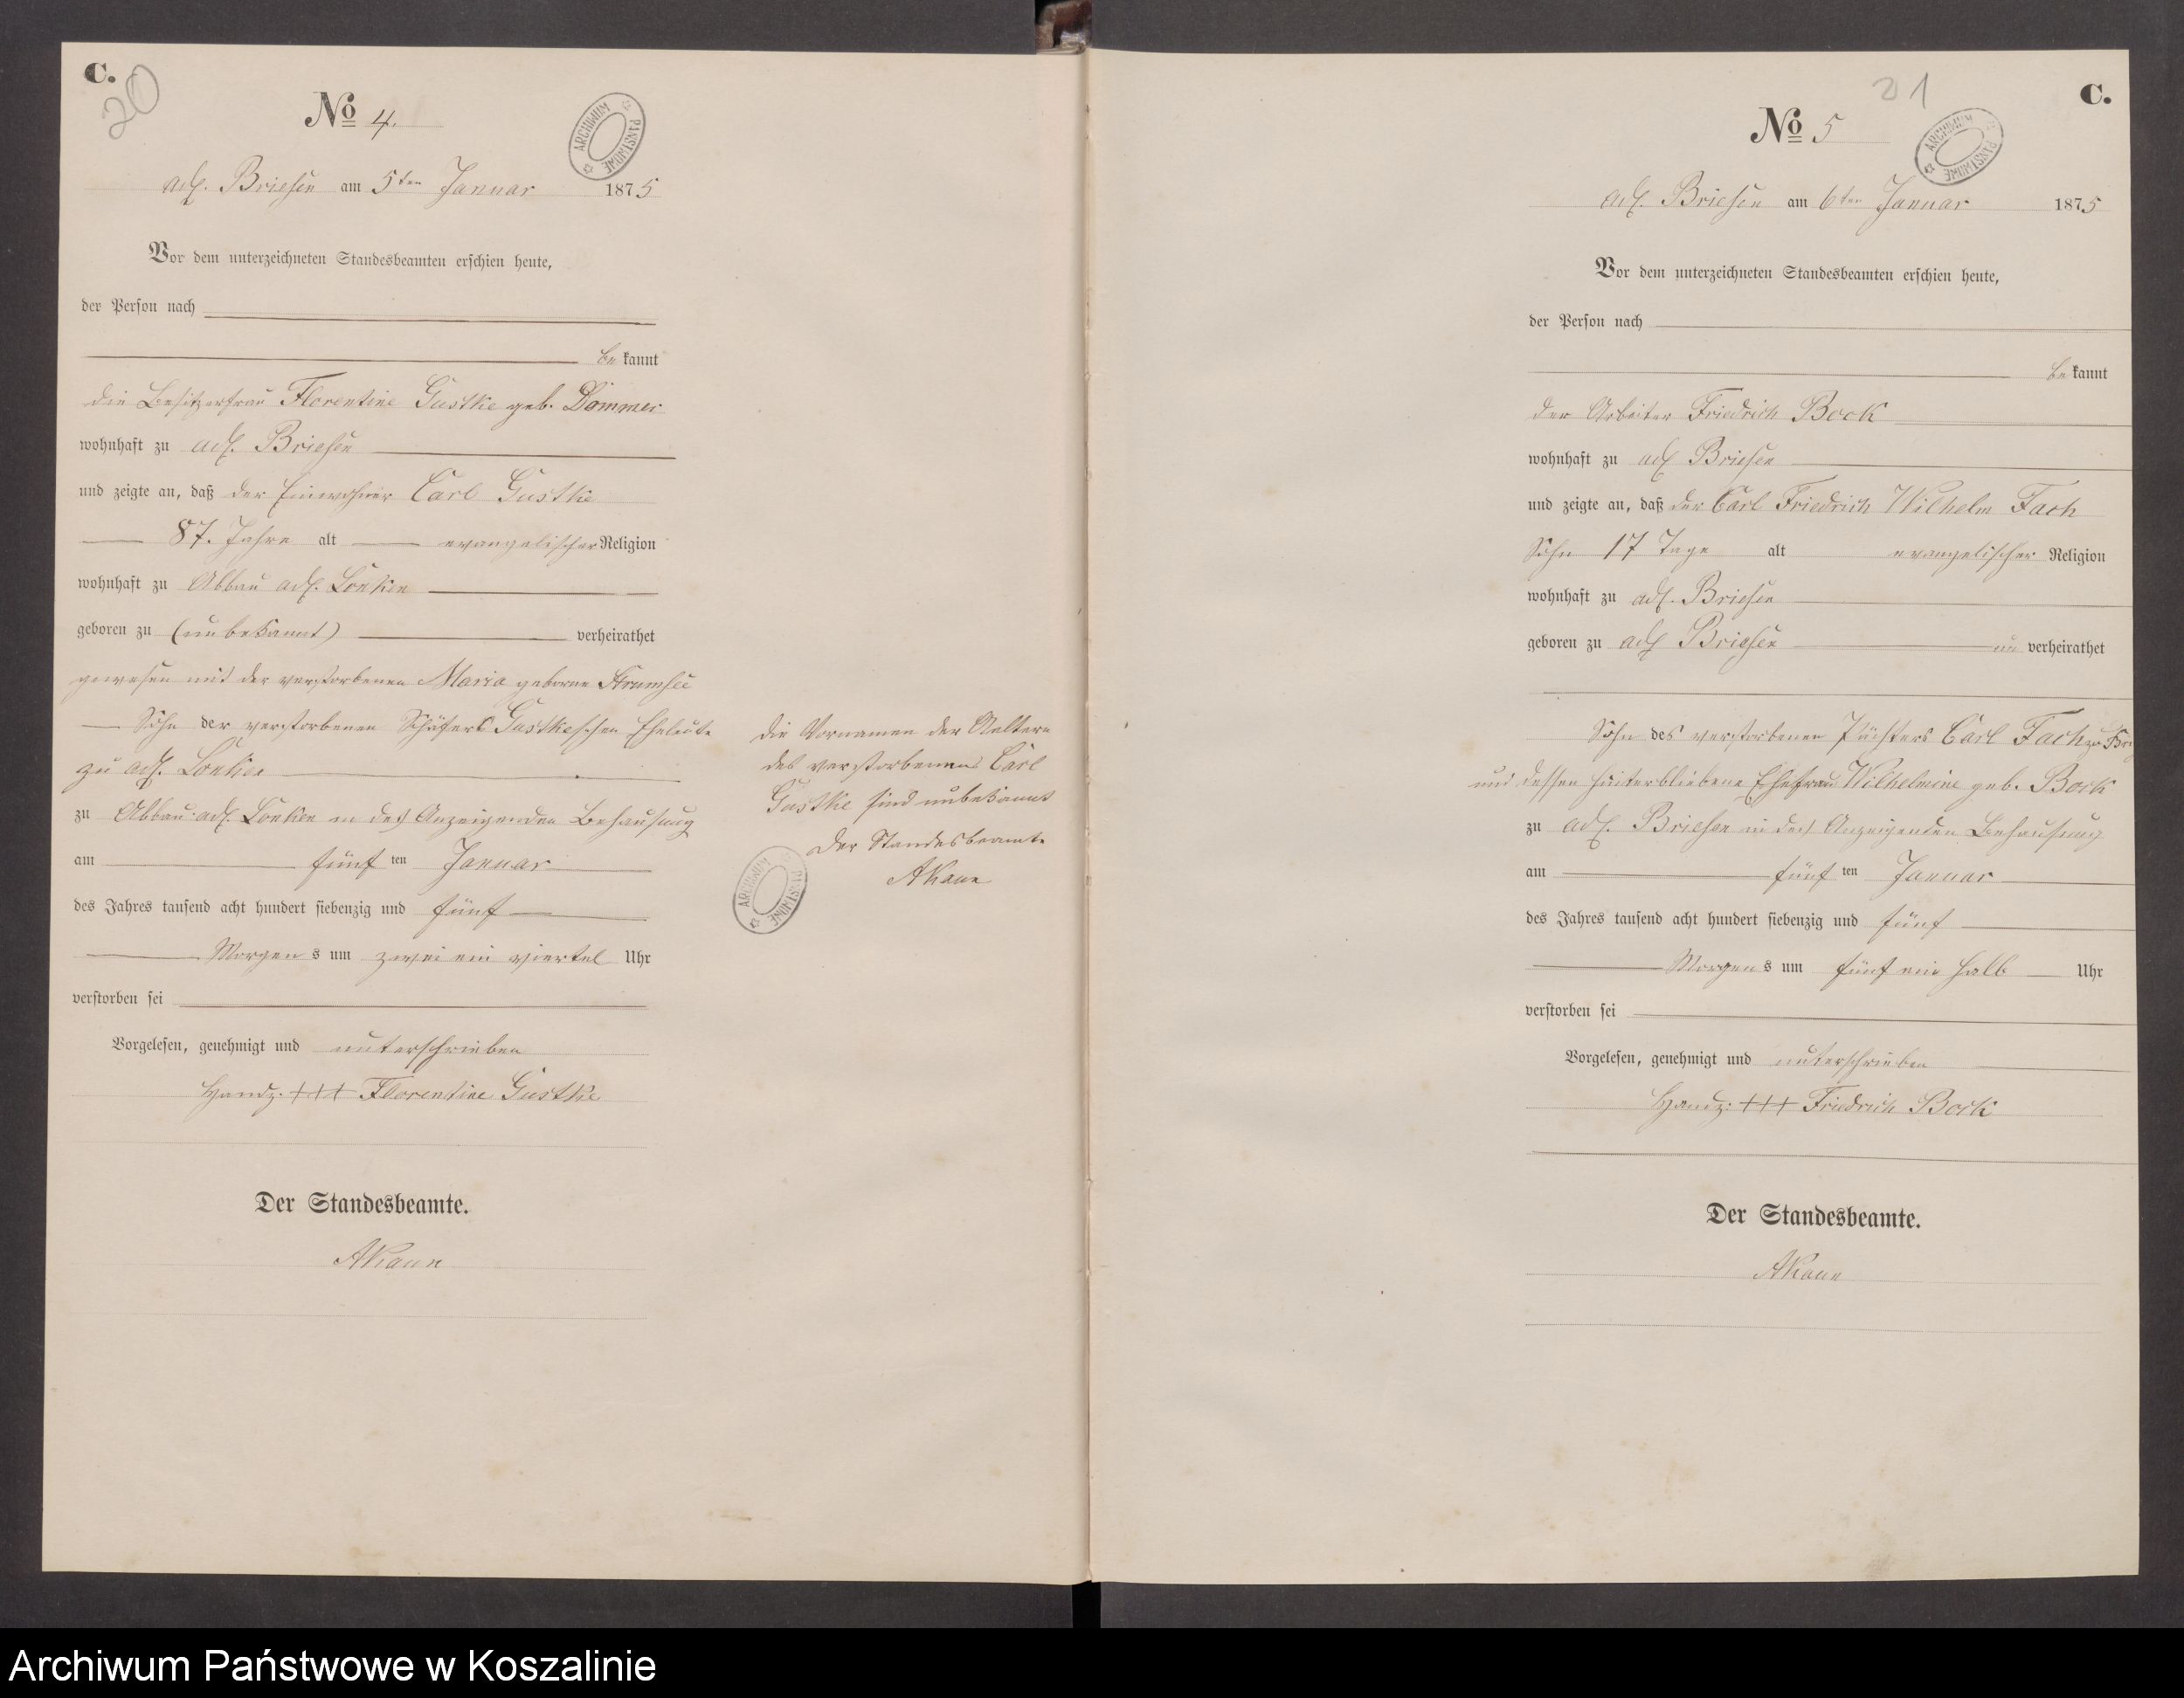 C.
20
No 4.
adl. Briesen am 5ten Januar 1875
Vor dem unterzeichneten Standesbeamten erschien heute,
der Person nach
be kannt
die Besitzerfrau Florentine Gustke geb. Dommer
wohnhaft zu adl. Briesen
und zeigte an, daß der Einwohner Carl Gustke
87. Jahre alt evangelischer Religion
wohnhaft zu Abbau adl. Lonken
geboren zu (unbekannt) verheirathet
gewesen mit der verstorbenen Maria geborne
Sohn der verstorbenen Schäfers Gustkeschen Eheleute
zu adl. Lonken
zu Abbau adl. Lonken in des Anzeigenden Behausung
am fünf ten Januar
des Jahres tausend acht hundert siebenzig und fünf
Morgen s um zwei ein viertel Uhr
verstorben sei
Vorgelesen, genehmigt und unterschrieben
Handz. +++ Florentine Gustke
Der Standesbeamte.
AKaun
die Vornamen der Aeltern
des verstorbenens Carl
Gustke sind unbekannt
Der Standesbeamte
AKaun
ARCHIWUM PAŃSTWOWE
C.
21
No 5
adl. Briesen am 6ten Januar 1875
Vor dem unterzeichneten Standesbeamten erschien heute,
der Person nach
be kannt
der Arbeiter Friedrich Bock
wohnhaft zu adl Briesen
und zeigte an, daß der Carl Friedrich Wilhelm Fach
Sohn 17 Tage alt evangelischer Religion
wohnhaft zu adl. Briesen
geboren zu adl Briesen un verheirathet
Sohn des verstorbenen Pächters Carl Fach zu
und dessen hinterbliebene Ehefrau Wilhelmine geb. Bock
zu adl. Briesen in des Anzeigenden Behausung
am fünf ten Januar
des Jahres tausend acht hundert siebenzig und fünf
Morgen s um fünf ein halb Uhr
verstorben sei
Vorgelesen, genehmigt und unterschrieben
Handz: +++ Friedrich Bock
Der Standesbeamte.
AKaun
ARCHIWUM PAŃSTWOWE
Archiwum Państwowe w Koszalinie